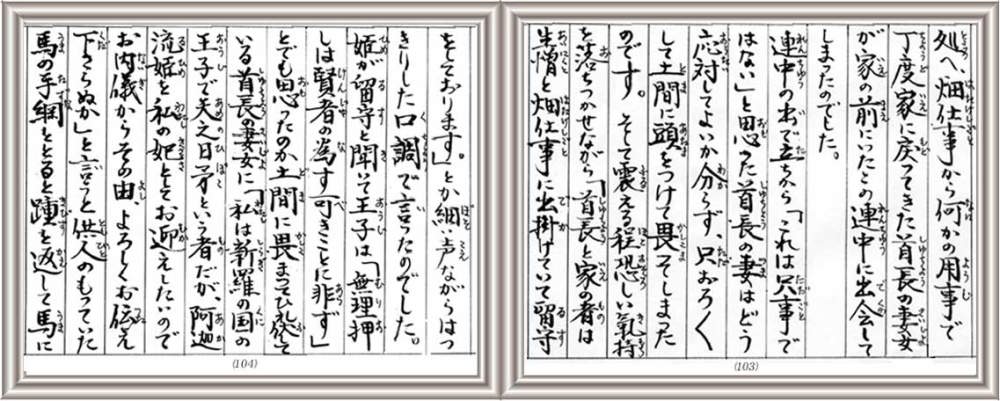 処へ畑仕事から何かの用事で
丁度家に戻ってきた首長の妻女
が家の前にいたこの連中に出会して
しまったのでした。
連中の出で立ちから「これは只事で
はない」と思った首長の妻はどう
応対してよいか分らず、只おろく
して土間に頭をつけて畏ってしまった
のです。そして震える程恐しい氣持
を落ちつかせながら「首長と家の者は
生憎と畑仕事に出掛けていて留守
(103)
をしております。」とか細い声ながらはっ
きりした口調で言ったのでした。
姫が留守と聞いて王子は「無理押
しは賢者の為す可きことに非ず」
とでも思ったのか土間に畏まってひれ伏して
いる首長の妻女に「私は新羅の国の
王子で天之日矛という者だが、阿迦
流姫を私の妃としてお迎えしたいので
お内儀からその由、よろしくお伝え
下さらぬか」と言うと供人のもっていた
馬の手綱をとると踵を返して馬に
(104)